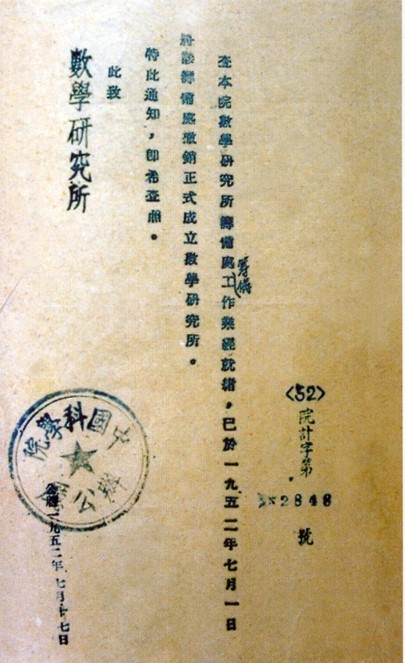 <52>
院計字第
2848
號
查本院數學研究所籌備處工作業經就緒，已於一九五二年七月一日
籌備
將該籌備處撤銷正式成立數學研究所。
特此通知，即希查照。
此致
數學研究所
中國科學院
辦公廳
公曆一九五二年七月十七日